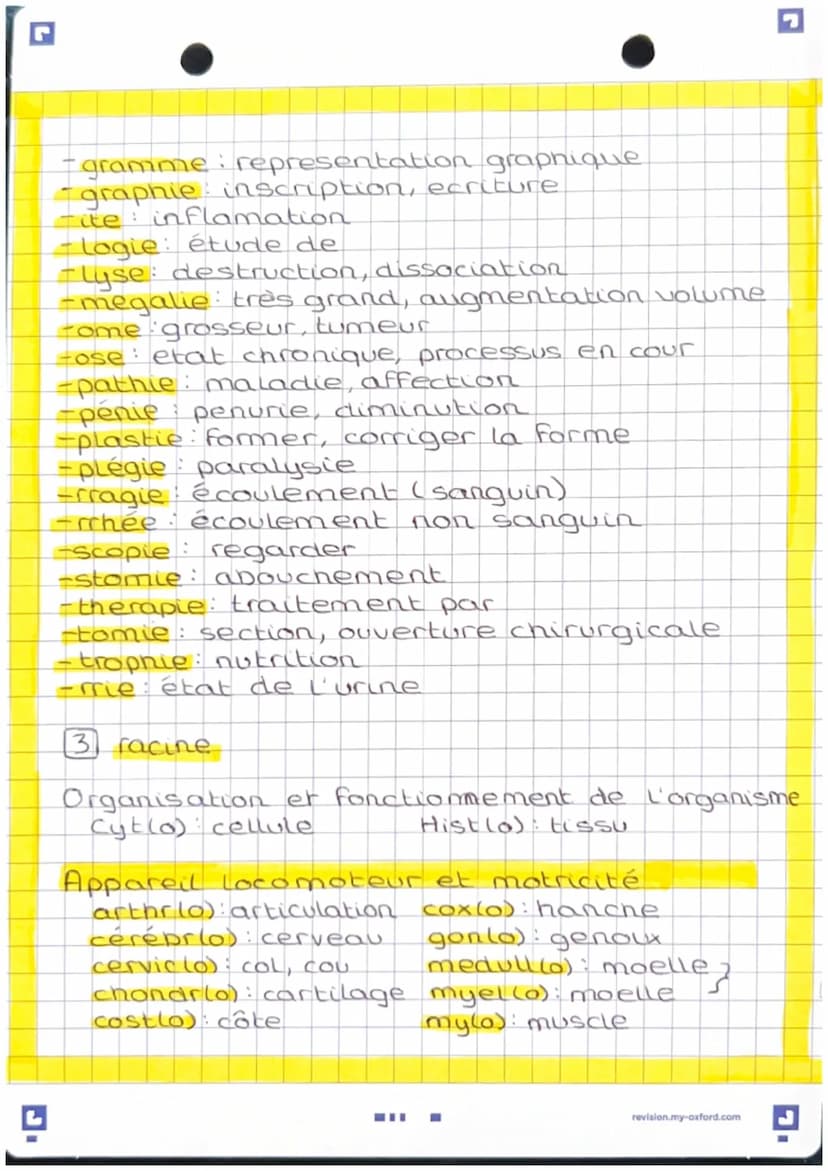 -gramme : representation graphique
-graphie : inscription, ecriture
-ite : inflamation
-logie : étude de
-lyse : destruction, dissociation
-mégalie : très grand, augmentation volume
-ome : grosseur, tumeur
-ose : etat chronique, processus en cour
-pathie : maladie, affection
-pénie : penurie, diminution
-plastie : former, corriger la forme
-plégie : paralysie
-rragie : écoulement (sanguin)
-rrhée : écoulement non sanguin
-scopie : regarder
-stomie : abouchement
-therapie : traitement par
-tomie : section, ouverture chirurgicale
-trophie : nutrition
-rrie : état de l'urine
3 racine
Organisation et fonctionnement de l'organisme
Cyt(o) : cellule Hist(o) : tissu
Appareil locomoteur et motricité
arthr(o) : articulation cox(o) : hanche
cérébr(o) : cerveau gon(o) : genoux
cervic(o) : col, cou medull(o) : moelle }
chondr(o) : cartilage myel(o) : moelle
cost(o) : côte my(o) : muscle
revision.my-oxford.com